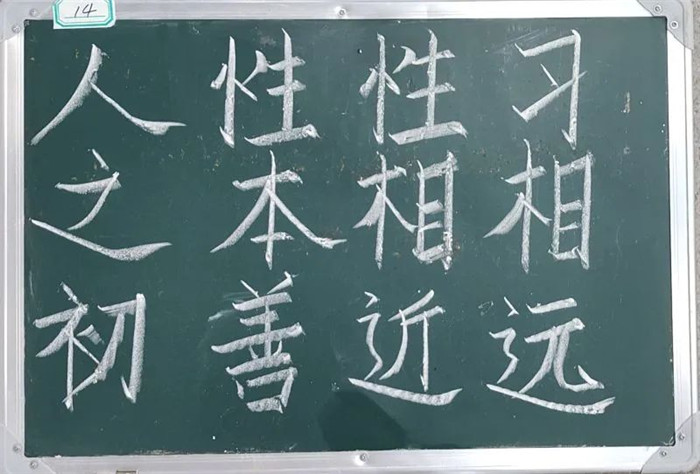 14
人之初
性本善
性相近
习相远